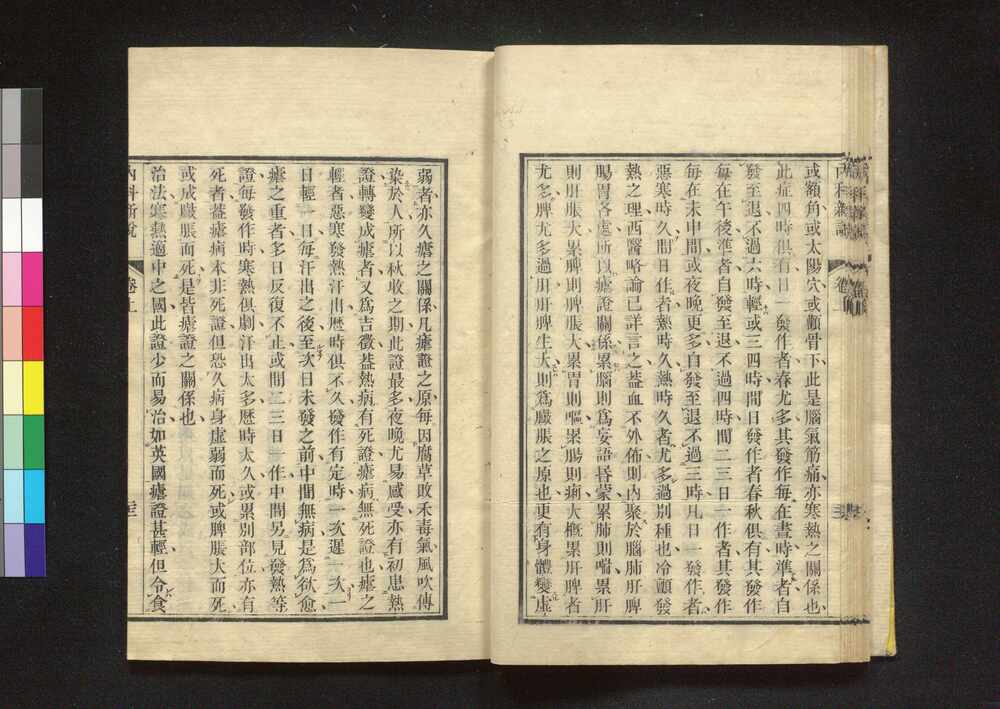 內科新說
卷上
或額角或太陽穴或顴骨下此是腦氣筋痛亦寒熱之關係也
此症四時俱有日一發作者春尤多其發作每在晝時準者自
發至退不過六時輕或三四時間日發作者春秋俱有其發作
每在午後準者自發至退不過四時間二三日一作者其發作
每在未申間或夜晚更多自發至退不過三時凡日一發作者
惡寒時久間日作者熱時久熱時久者尤多過別種也冷顫發
熱之理西醫略論已詳言之蓋血不外佈則內聚於腦肺肝脾
腸胃各處所以瘧證關係累腦則爲妄語昏蒙累肺則喘累肝
則肝脹大累脾則脾脹大累胃則嘔累腸則痢大概累肝脾者
尤多脾尤多過肝肝脾生大則爲臌脹之原也更有身體變虛
弱者亦久瘧之關係凡瘧證之原每因腐草敗禾毒氣風吹傳
染於人所以秋收之期此證最多夜晚尤易感受亦有初患熱
證轉變成瘧者又爲吉徵蓋熱病有死證瘧病無死證也瘧之
輕者惡寒發熱汗出歷時俱不久發作有定時一次遲一次一
日輕一日每汗出之後至次日未發之前中間無病是爲欲愈
瘧之重者多日反復不止或間二三日一作中間另見發熱等
證每發作時寒熱俱劇汗出太多歷時太久或累別部位亦有
死者蓋瘧病本非死證但恐久病身虛弱而死或脾脹大而死
或成臌脹而死是皆瘧證之關係也
治法寒熱適中之國此證少而易治如英國瘧證甚輕但令食
內科新說
卷上